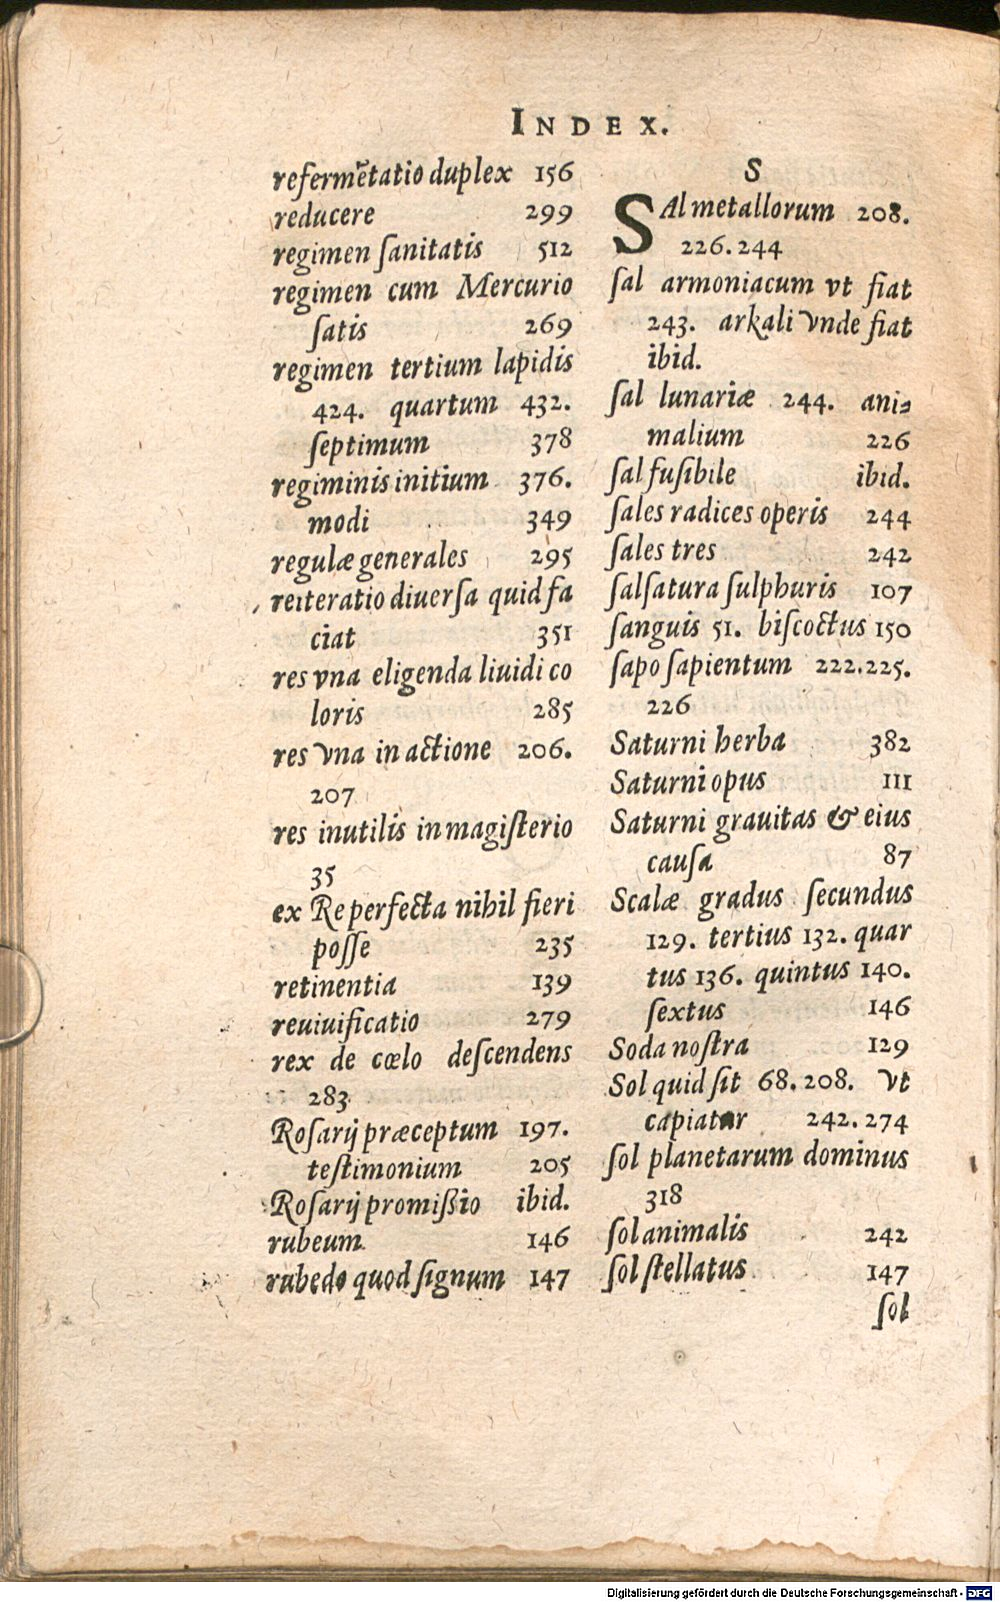 INDEX.
refermẽtatio duplex 156
reducere 299
regimen ſanitatis 512
regimen cum Mercurio
ſatis 269
regimen tertium lapidis
424. quartum 432.
ſeptimum 378
regiminis initium 376.
modi 349
regulæ generales 295
reiteratio diuerſa quid fa
ciat 351
res vna eligenda liuidi co
loris 285
res vna in actione 206.
207
res inutilis in magiſterio
35
ex Re perfecta nihil fieri
poſſe 235
retinentia 139
reuiuificatio 279
rex de cœlo deſcendens
283
Roſarij præceptum 197.
teſtimonium 205
Roſarij promißio ibid.
rubeum 146
rubedo quod ſignum 147
S
SAl metallorum 208.
226. 244
ſal armoniacum vt fiat
243. arkali vnde fiat
ibid.
ſal lunariæ 244. ani-
malium 226
ſal fuſibile ibid.
ſales radices operis 244
ſales tres 242
ſalſatura ſulphuris 107
ſanguis 51. biſcoctus 150
ſapo ſapientum 222.225.
226
Saturni herba 382
Saturni opus 111
Saturni grauitas & eius
cauſa 87
Scalæ gradus ſecundus
129. tertius 132. quar
tus 136. quintus 140.
ſextus 146
Soda noſtra 129
Sol quid ſit 68. 208. vt
capiatur 242. 274
ſol planetarum dominus
318
ſol animalis 242
ſol ſtellatus 147
ſol
Digitalisierung gefördert durch die Deutsche Forschungsgemeinschaft - DFG